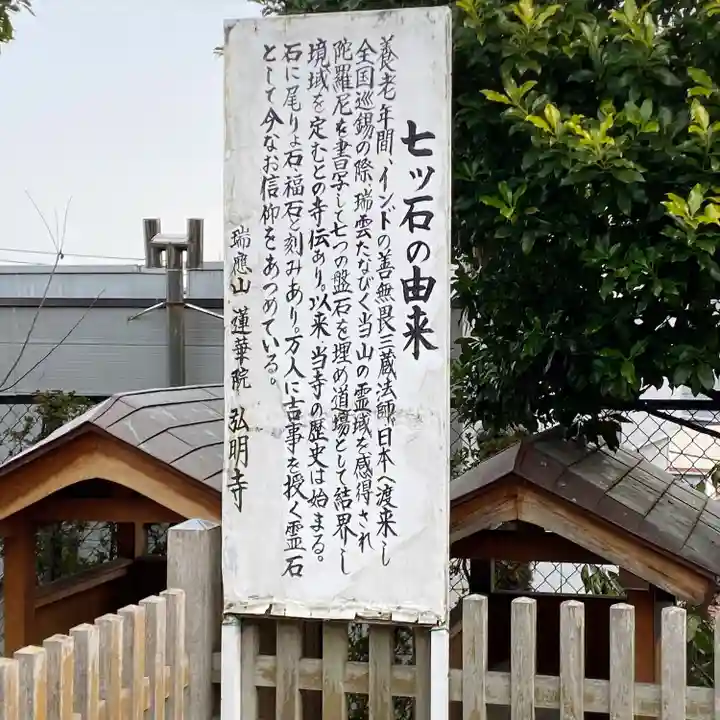 七ッ石の由来
養老年間、インドの善無畏三蔵法師が日本へ渡来し
全国巡錫の際、瑞雲たなびく当山の霊域を感得され
陀羅尼を書写して七つの盤石を埋め道場として結界し
境域を定むとの寺伝あり。以来、当寺の歴史は始まる。
石に尾りよ石・福石と刻みあり。万人に吉事を授く霊石
として今なお信仰をあつめている。
瑞應山 蓮華院 弘明寺